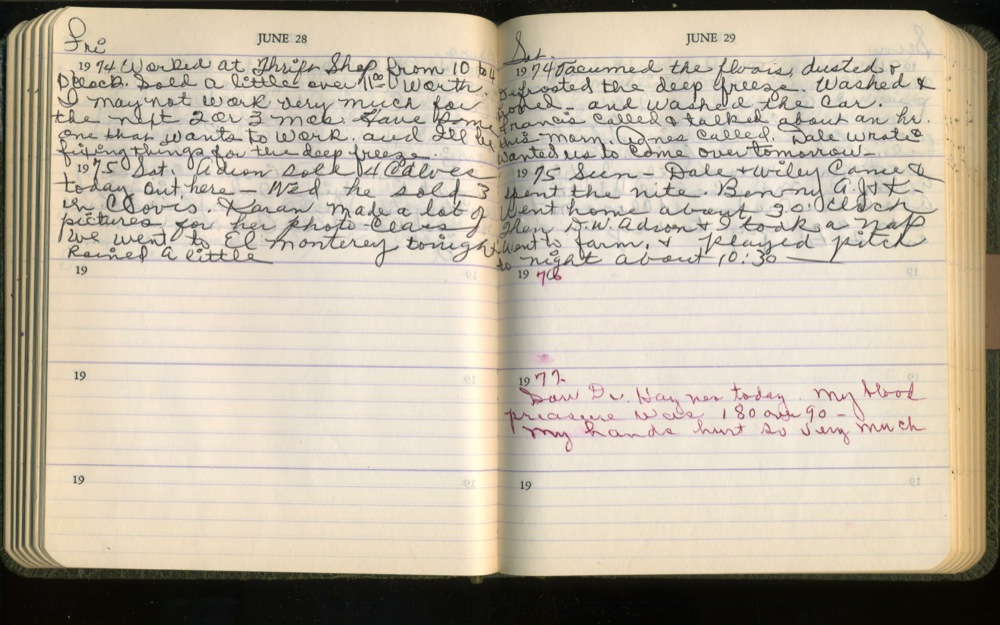 Fri
JUNE 28
1974 Worked at Thrift Shop from 10 to 4
O clock. Sold a little over 11.00 worth.
I may not work very much for
the next 2 or 3 mos. Have some
one that wants to work. and I'll be
fixing things for the deep freeze.
1975 Sat. Adson sold 4 Calves
today out here - Wed he sold 3
in Clovis. Karan made a lot of
pictures for her photo-Class
We went to El Monterey tonight
Rained a little
19
19
19
Sat.
JUNE 29
1974 Vacumed the floors, dusted &
defrosted the deep freeze. Washed &
- and washed the Car.
Francis called & talked about an hr.
this morn. Agnes called. Dale wrote &
wanted us to come over tomorrow -
1975 Sun - Dale & Wiley Came &
spent the nite. Benny
went home about 3 O'clock
Then D.W. Adson & I took a Nap
Went to farm, & played pitch
to night about 10:30
1976
1977
Saw Dr. Haynes today. My blood
preasure was 180 over 90 -
My hands hurt so very much
19